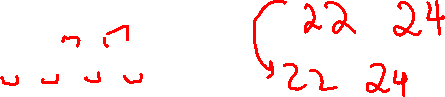 22 24
22 24